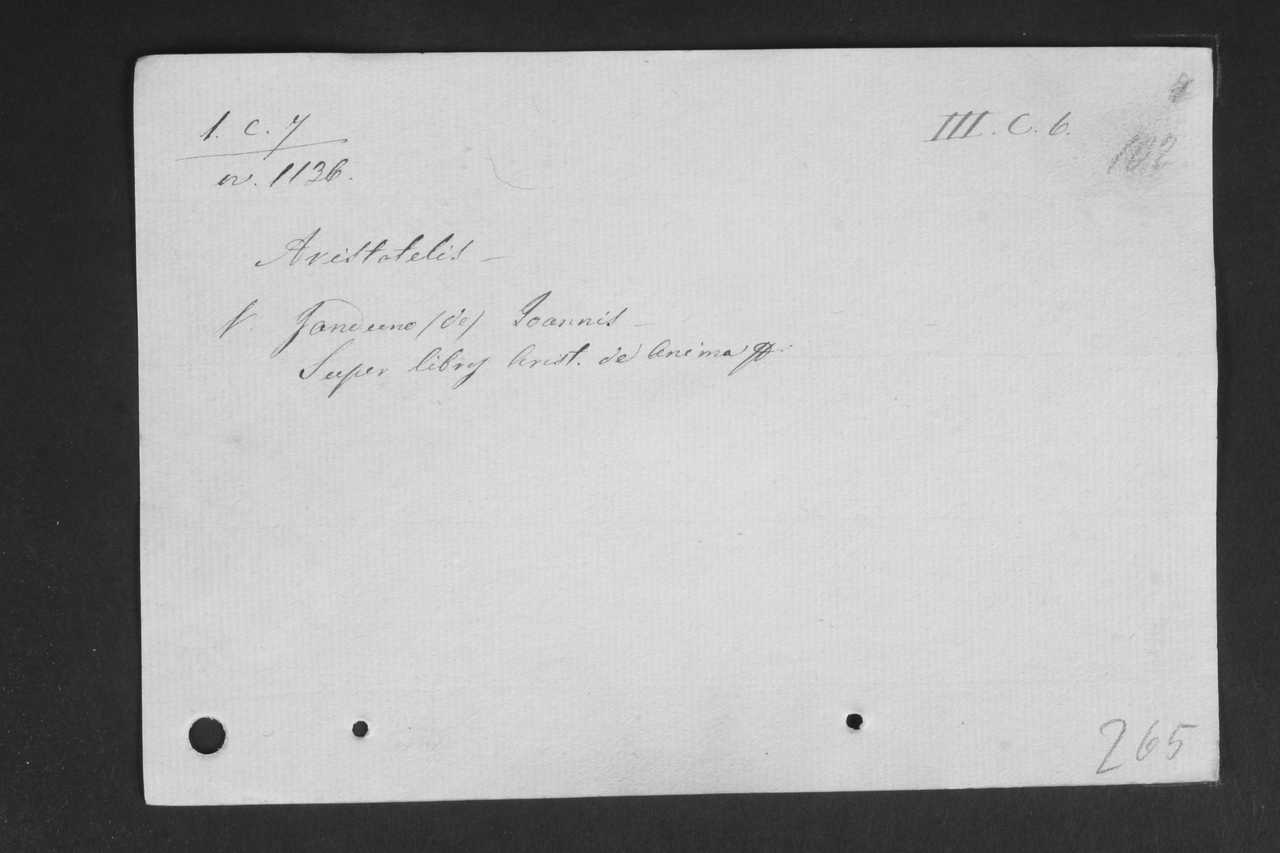 1. C. 7
III. C. 6.
102
n. 1136.
Aristotelis –
V. Janduno (de) Joannis –
Super libros Arist. de Anima
265